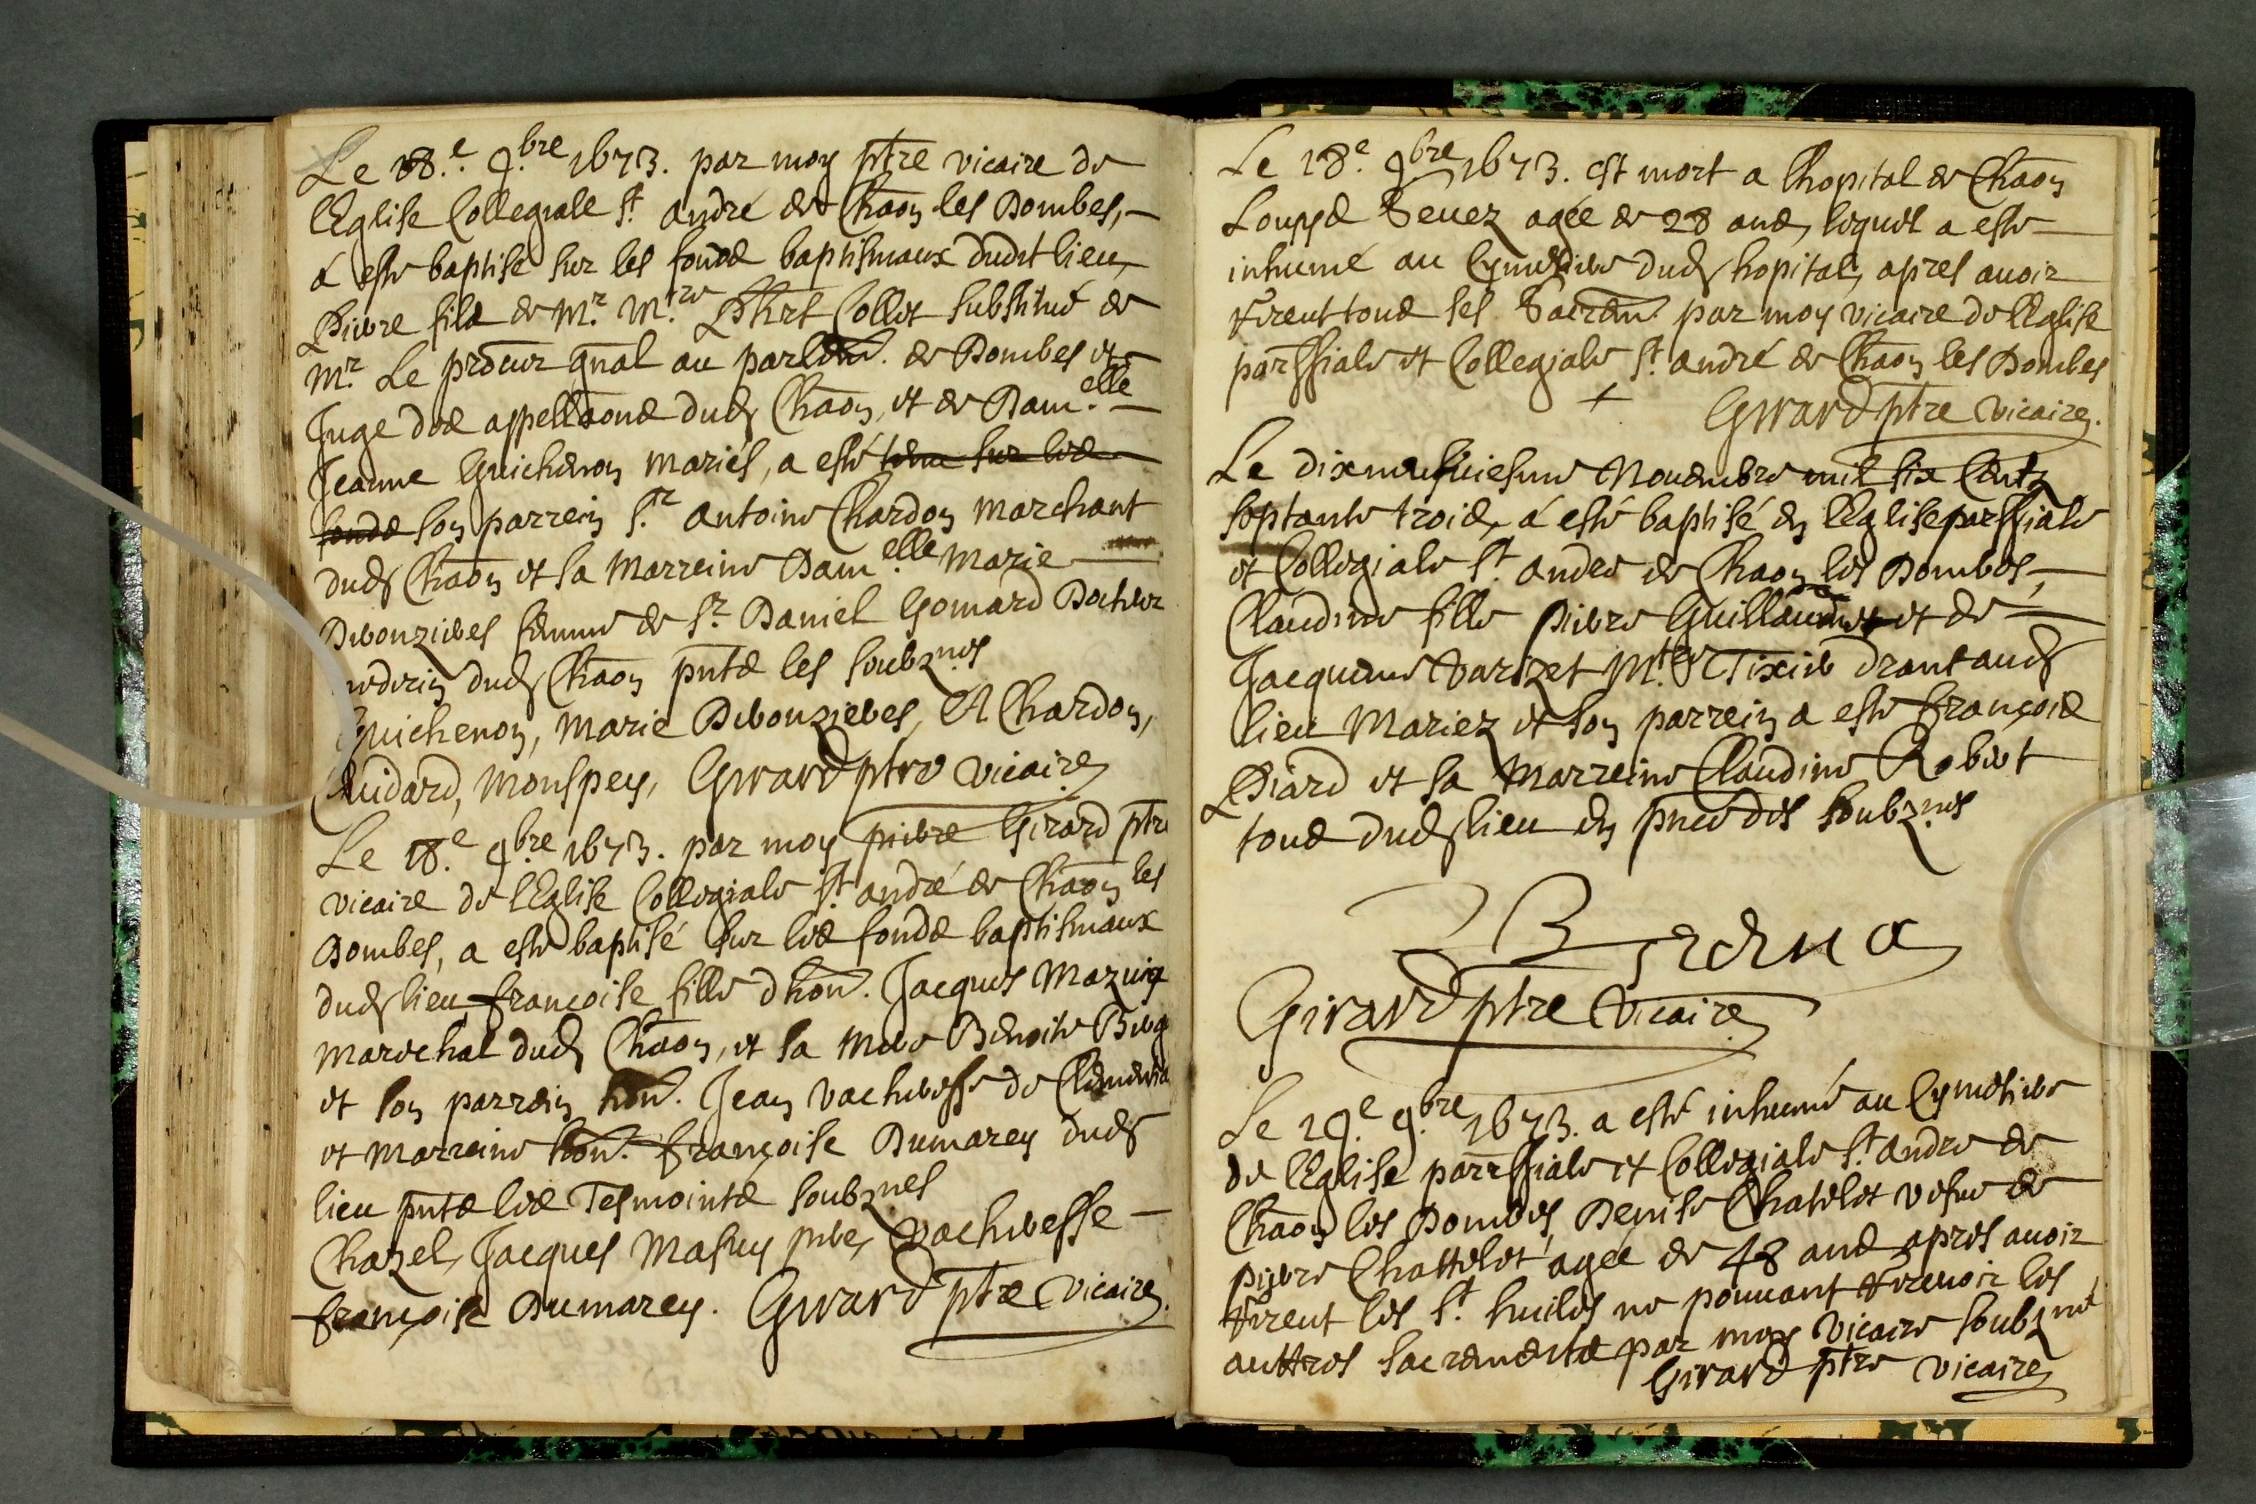 Le 18.e 9.bre 1673. par moy ptre vicaire de
lEglise Collegialle St. andré de Chaon les Dombes,
a esté baptisé sur les fonds baptismaux dudit lieu
Pierre fils de Mr. Mtre Phrt Collet substitué de
Mr. Le procur gnal au parlem. de Dombes et
Juge des appellaons dud Chaon, et de Dam.elle
Jeanne Guichenon mariés, a esté tenu sur les
fonds son parrein Sr. antoine Chardon marchant
dud Chaon et sa marreine Dam.elle Marie
Debouzieres femme de Sr. Daniel Gomard Docteur
medecin dud Chaon pnts les soubz.nes
Guichenon, Marie Debouzieres, A Chardon,
Cuidard, Monspey, Girard ptre vicaire
Le 18.e 9.bre 1673. par moy pierre Girard ptre
vicaire de lEglise Collegiale St. andré de Chaon les
Dombes, a esté baptisé sur les fonds baptismaux
dud lieu francoise fille dhon. Jacques Mazuy
Mareschal dud Chaon, et sa mere Benoite
et son parrein hon. Jean vacheresse de
et marreine hon. françoise Dumarey dud
lieu pnts les Tesmoints soubz.nes
Chazel, Jacques Masuy pere, vacheresse
françoise Dumarey. Girard ptre vicaire.
Le 18.e 9bre 1673. est mort a lhopital de Chaon
Louyse Seuez agée de 28 ans, lequel a esté
inhumé au Cymetiere dud hopital, apres auoir
receut tous ses Sacrem. par moy vicaire de lEglise
parrssiale et Collegiale St. andré de Chaon les Dombes
Girard ptre vicaire.
Le dixneufuiesme Nouembre mil six Cents
septante trois, a esté baptisé en lEglise parssiale
et Collegiale St. andre de Chaon les Dombes,
Claudine fille Pierre Guillaumet et de
Jacqueme Varizet M.tre Tixier drant aud
lieu Mariez et son parrein a esté françois
Piard et sa Marreine Claudine Robert
tous dud lieu en pnce des soubz.nes
Berna
Girard ptre vicaire
Le 19.e 9.bre 1673. a esté inhumé au Cymetiere
de lEglise parrssiale et Collegiale St. andre de
Chaon les Dombes, Denise Chatelet vefue de
pierre Chattelet agée de 48 ans apres auoir
receut les St. huiles ne pouuant receuoir les
auttres sacrements par moy vicaire soubz.né
Girard ptre vicaire